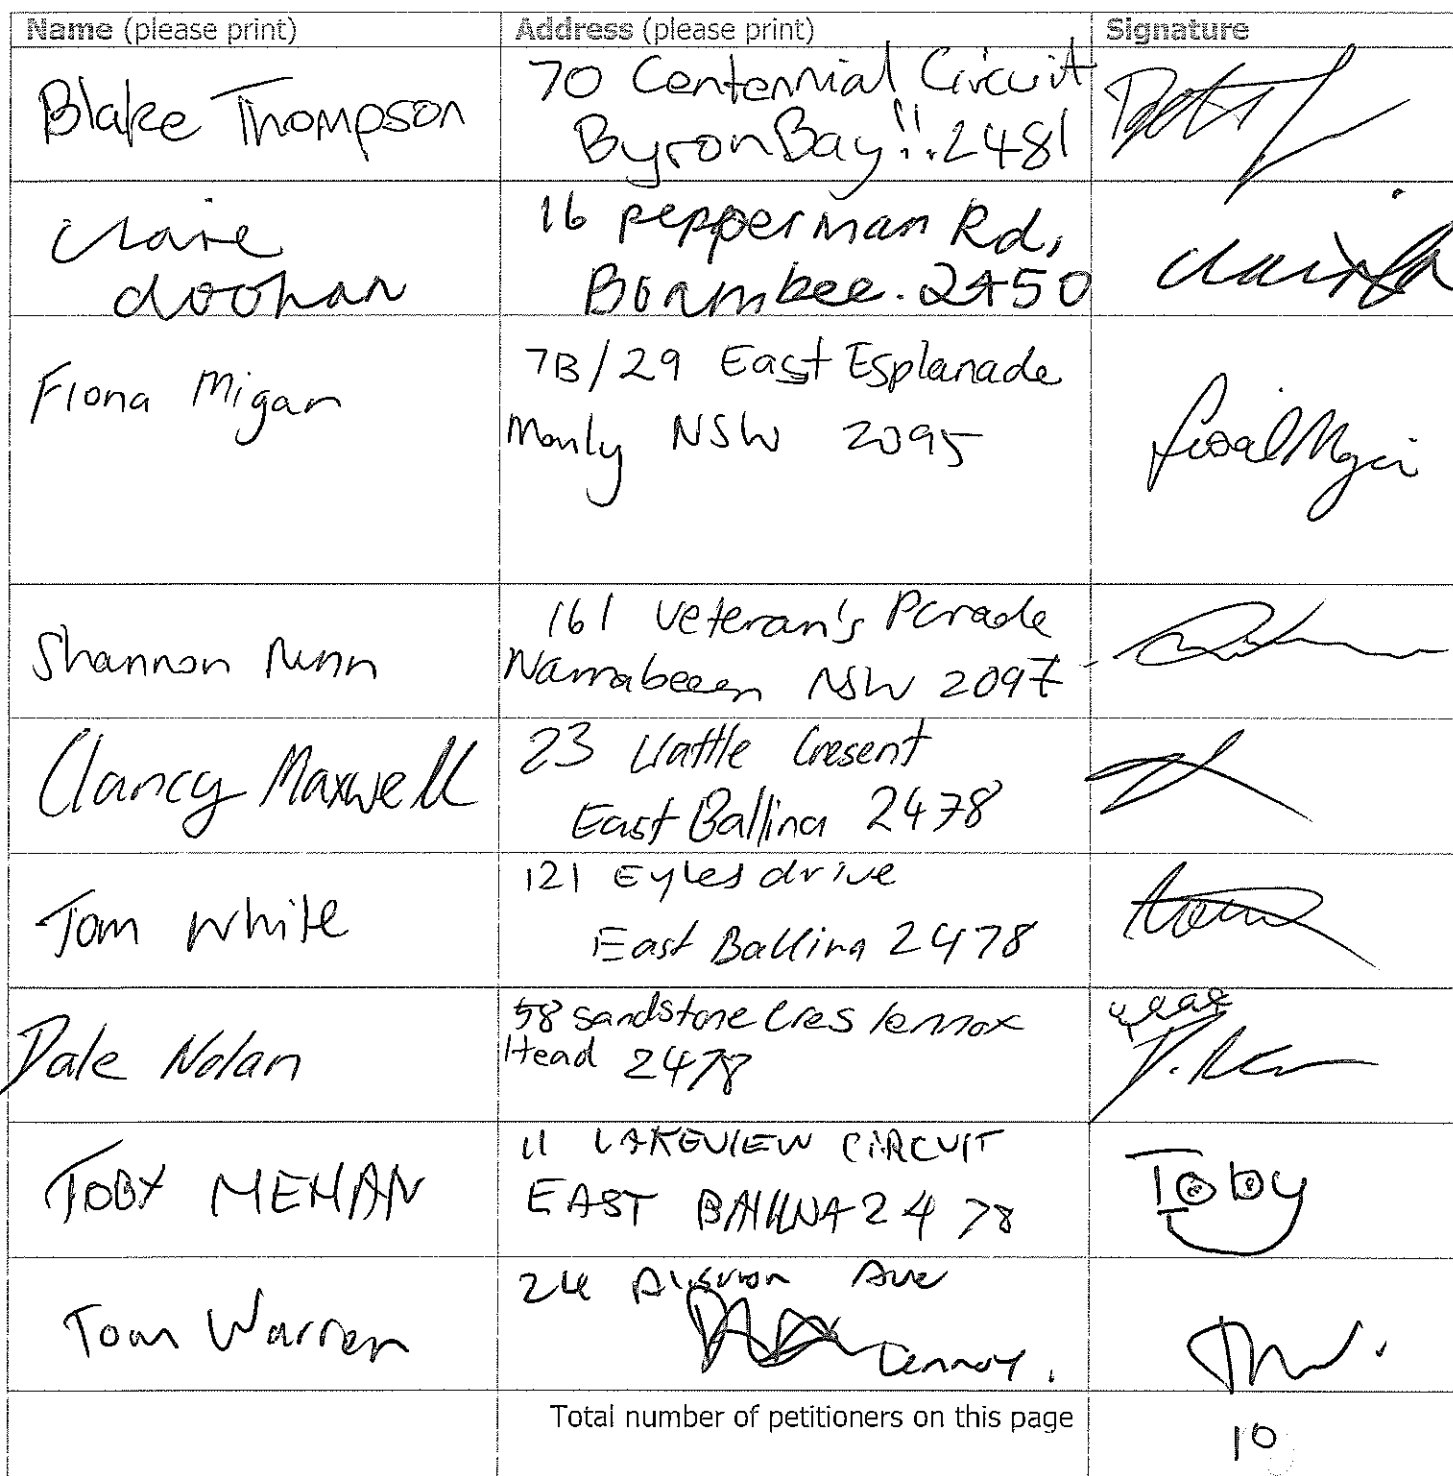 Name (please print) Address (please print) Signature
Blake Thompson
70 Centennial Circuit
Byron Bay!! 2481
Claire
doohan
16 pepperman Rd,
Boambee. 2450
Fiona Migan
7B/29 East Esplanade
Manly NSW 2095
Shannon Nunn
161 Veteran's Parade
Narrabeen NSW 2097
Clancy Maxwell
23 Wattle Cresent
East Ballina 2478
Tom White
121 Eyles drive
East Ballina 2478
Dale Nolan
58 sandstone cres lennox
Head 2478
yeae
TOBY MEHAN
11 LAKEVIEW CIRCUIT
EAST BALLINA 2478
Toby
Tom Warren
24 Ave
Lennox.
Total number of petitioners on this page
10